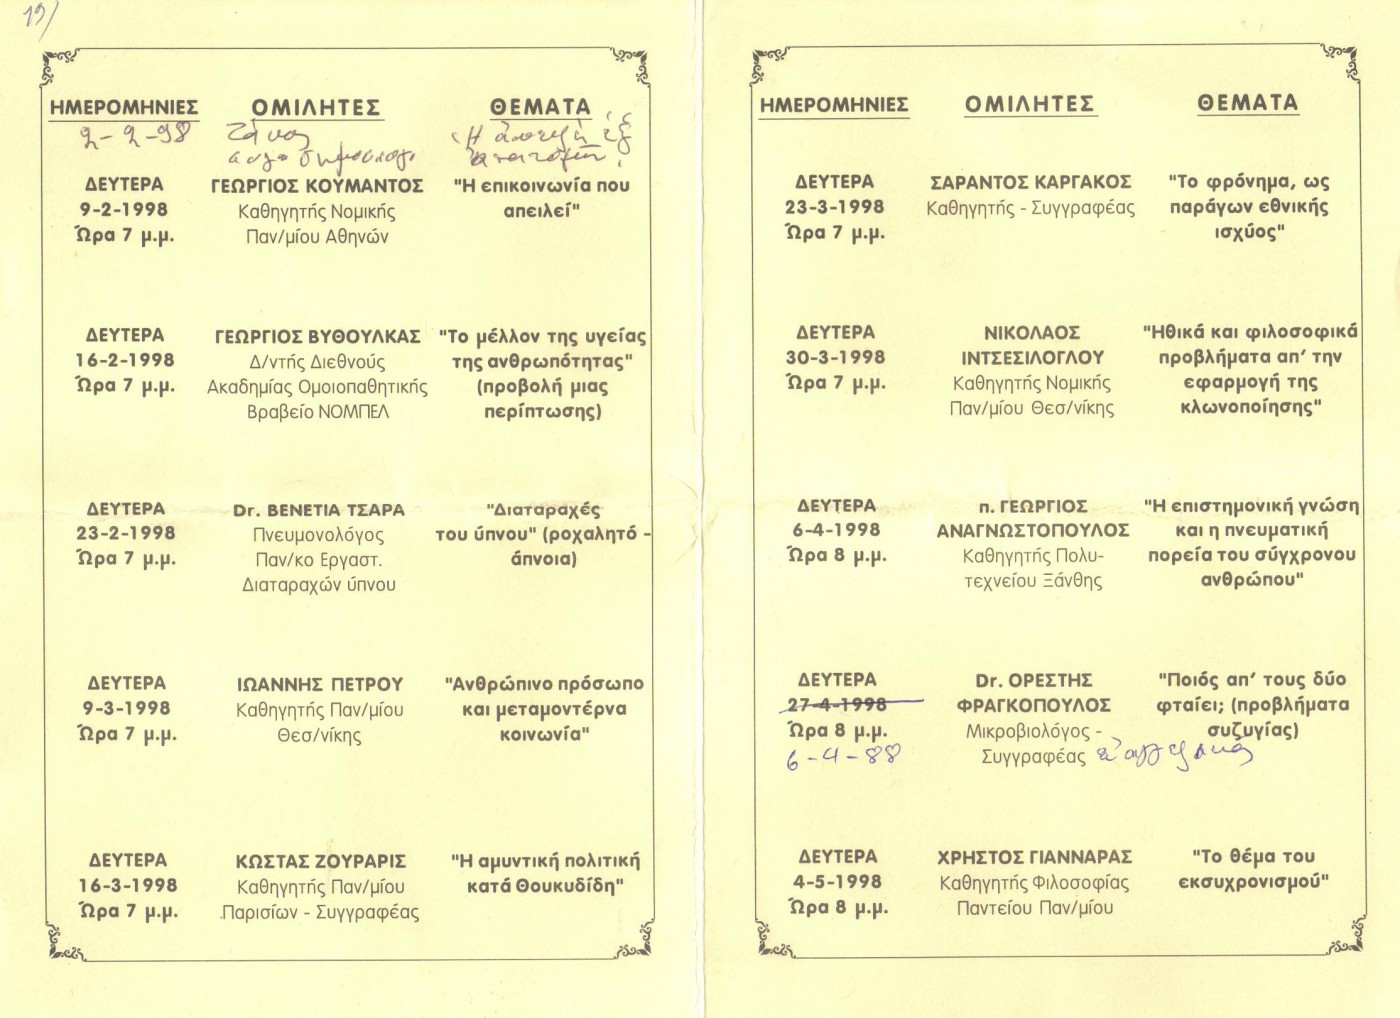 19/
ΗΜΕΡΟΜΗΝΙΕΣ ΟΜΙΛΗΤΕΣ ΘΕΜΑΤΑ
2-2-98
ΔΕΥΤΕΡΑ
9-2-1998
Ώρα 7 μ.μ.
ΓΕΩΡΓΙΟΣ ΚΟΥΜΑΝΤΟΣ
Καθηγητής Νομικής
Παν/μίου Αθηνών
"Η επικοινωνία που
απειλεί"
ΔΕΥΤΕΡΑ
16-2-1998
Ώρα 7 μ.μ.
ΓΕΩΡΓΙΟΣ ΒΥΘΟΥΛΚΑΣ
Δ/ντής Διεθνούς
Ακαδημίας Ομοιοπαθητικής
Βραβείο ΝΟΜΠΕΛ
"Το μέλλον της υγείας
της ανθρωπότητας"
(προβολή μιας
περίπτωσης)
ΔΕΥΤΕΡΑ
23-2-1998
Ώρα 7 μ.μ.
Dr. ΒΕΝΕΤΙΑ ΤΣΑΡΑ
Πνευμονολόγος
Παν/κο Εργαστ.
Διαταραχών ύπνου
"Διαταραχές
του ύπνου" (ροχαλητό -
άπνοια)
ΔΕΥΤΕΡΑ
9-3-1998
Ώρα 7 μ.μ.
ΙΩΑΝΝΗΣ ΠΕΤΡΟΥ
Καθηγητής Παν/μίου
Θεσ/νίκης
"Ανθρώπινο πρόσωπο
και μεταμοντέρνα
κοινωνία"
ΔΕΥΤΕΡΑ
16-3-1998
Ώρα 7 μ.μ.
ΚΩΣΤΑΣ ΖΟΥΡΑΡΙΣ
Καθηγητής Παν/μίου
Παρισίων - Συγγραφέας
"Η αμυντική πολιτική
κατά Θουκυδίδη"
ΗΜΕΡΟΜΗΝΙΕΣ ΟΜΙΛΗΤΕΣ ΘΕΜΑΤΑ
ΔΕΥΤΕΡΑ
23-3-1998
Ώρα 7 μ.μ.
ΣΑΡΑΝΤΟΣ ΚΑΡΓΑΚΟΣ
Καθηγητής - Συγγραφέας
"Το φρόνημα, ως
παράγων εθνικής
ισχύος"
ΔΕΥΤΕΡΑ
30-3-1998
Ώρα 7 μ.μ.
ΝΙΚΟΛΑΟΣ
ΙΝΤΣΕΣΙΛΟΓΛΟΥ
Καθηγητής Νομικής
Παν/μίου Θεσ/νίκης
"Ηθικά και φιλοσοφικά
προβλήματα απ' την
εφαρμογή της
κλωνοποίησης"
ΔΕΥΤΕΡΑ
6-4-1998
Ώρα 8 μ.μ.
π. ΓΕΩΡΓΙΟΣ
ΑΝΑΓΝΩΣΤΟΠΟΥΛΟΣ
Καθηγητής Πολυ-
τεχνείου Ξάνθης
"Η επιστημονική γνώση
και η πνευματική
πορεία του σύγχρονου
ανθρώπου"
ΔΕΥΤΕΡΑ
27-4-1998
Ώρα 8 μ.μ.
6-4-88
Dr. ΟΡΕΣΤΗΣ
ΦΡΑΓΚΟΠΟΥΛΟΣ
Μικροβιολόγος -
Συγγραφέας
"Ποιός απ' τους δύο
φταίει; (προβλήματα
συζυγίας)
ΔΕΥΤΕΡΑ
4-5-1998
Ώρα 8 μ.μ.
ΧΡΗΣΤΟΣ ΓΙΑΝΝΑΡΑΣ
Καθηγητής Φιλοσοφίας
Παντείου Παν/μίου
"Το θέμα του
εκσυχρονισμού"